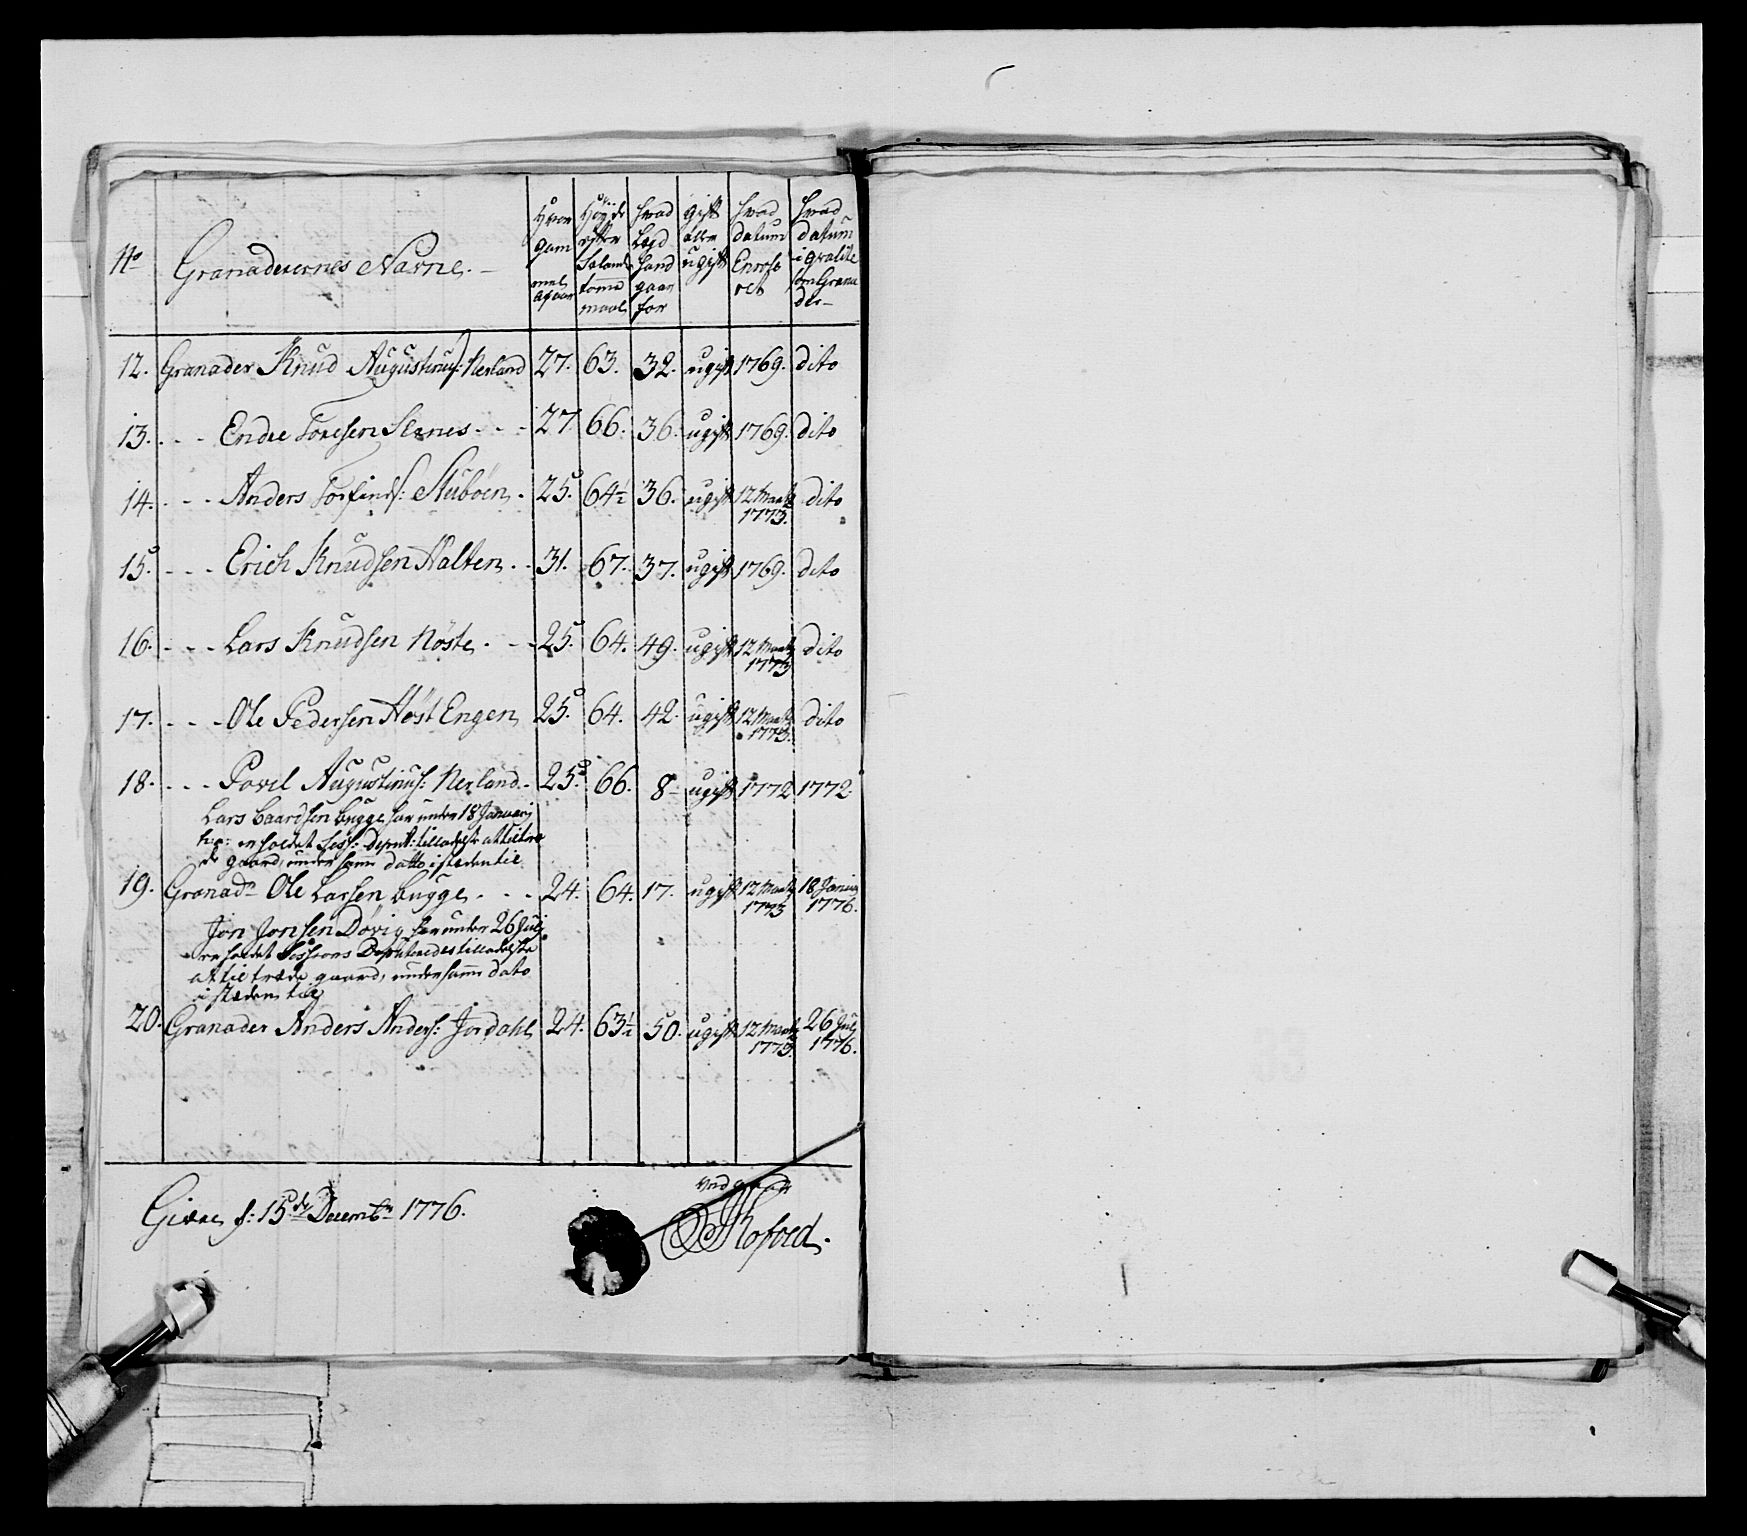 No Granaderernes Navne. Hvor gammel af aar Høyde efter Salands tomme maal hvad Lægd hand gaar for gift eller ugift hvad datum Enrolleret hvad datum i qvalite som Granader
12. Granader Knud Augustinus: Nerland 27. 63. 32. ugift 1769. dito
13. - - - Endre Toresen Slenes - - - 27 66. 36. ugift 1769. dito
14. - - - Anders Torfinds: Stuböen - 25. 64½ 36. ugift 12 Martz 1773. dito
15. - - - Erich Knudsen Halten - - 31. 67. 37. ugift 1769. dito
16. - - - Lars Knudsen Nöste - - - 25. 64. 49. ugift 12 Martz 1773 dito
17. - - - Ole Pedersen Höst Engen 25. 64. 42. ugift 12 Martz 1773. dito
18. - - - Povel Augustinus: Nerland - 25. 66. 8 - ugift 1772 1772.
Lars Baardsen Bugge har under 18 Januarj
h:a: erholdet Sess: Deput: tilladelse at tiltræ
de gaard, under samme datto i stæden til
19. Granadr Ole Larsen Bugge - - - 24. 64. 17. ugift 12 Martz 1773 18 Januarj 1776.
Jon Jonsen Döving har under 26 Julj
erholdet Sessions Deputeredes tilladelse
at tiltræde gaard, under samme dato
i stæden til
20. Granader Anders Anders: Jordahl 24. 63½ 50. ugift 12 Martz 1773. 26 Julj 1776.
d: 15de Decembr 1776.
Kofoed.